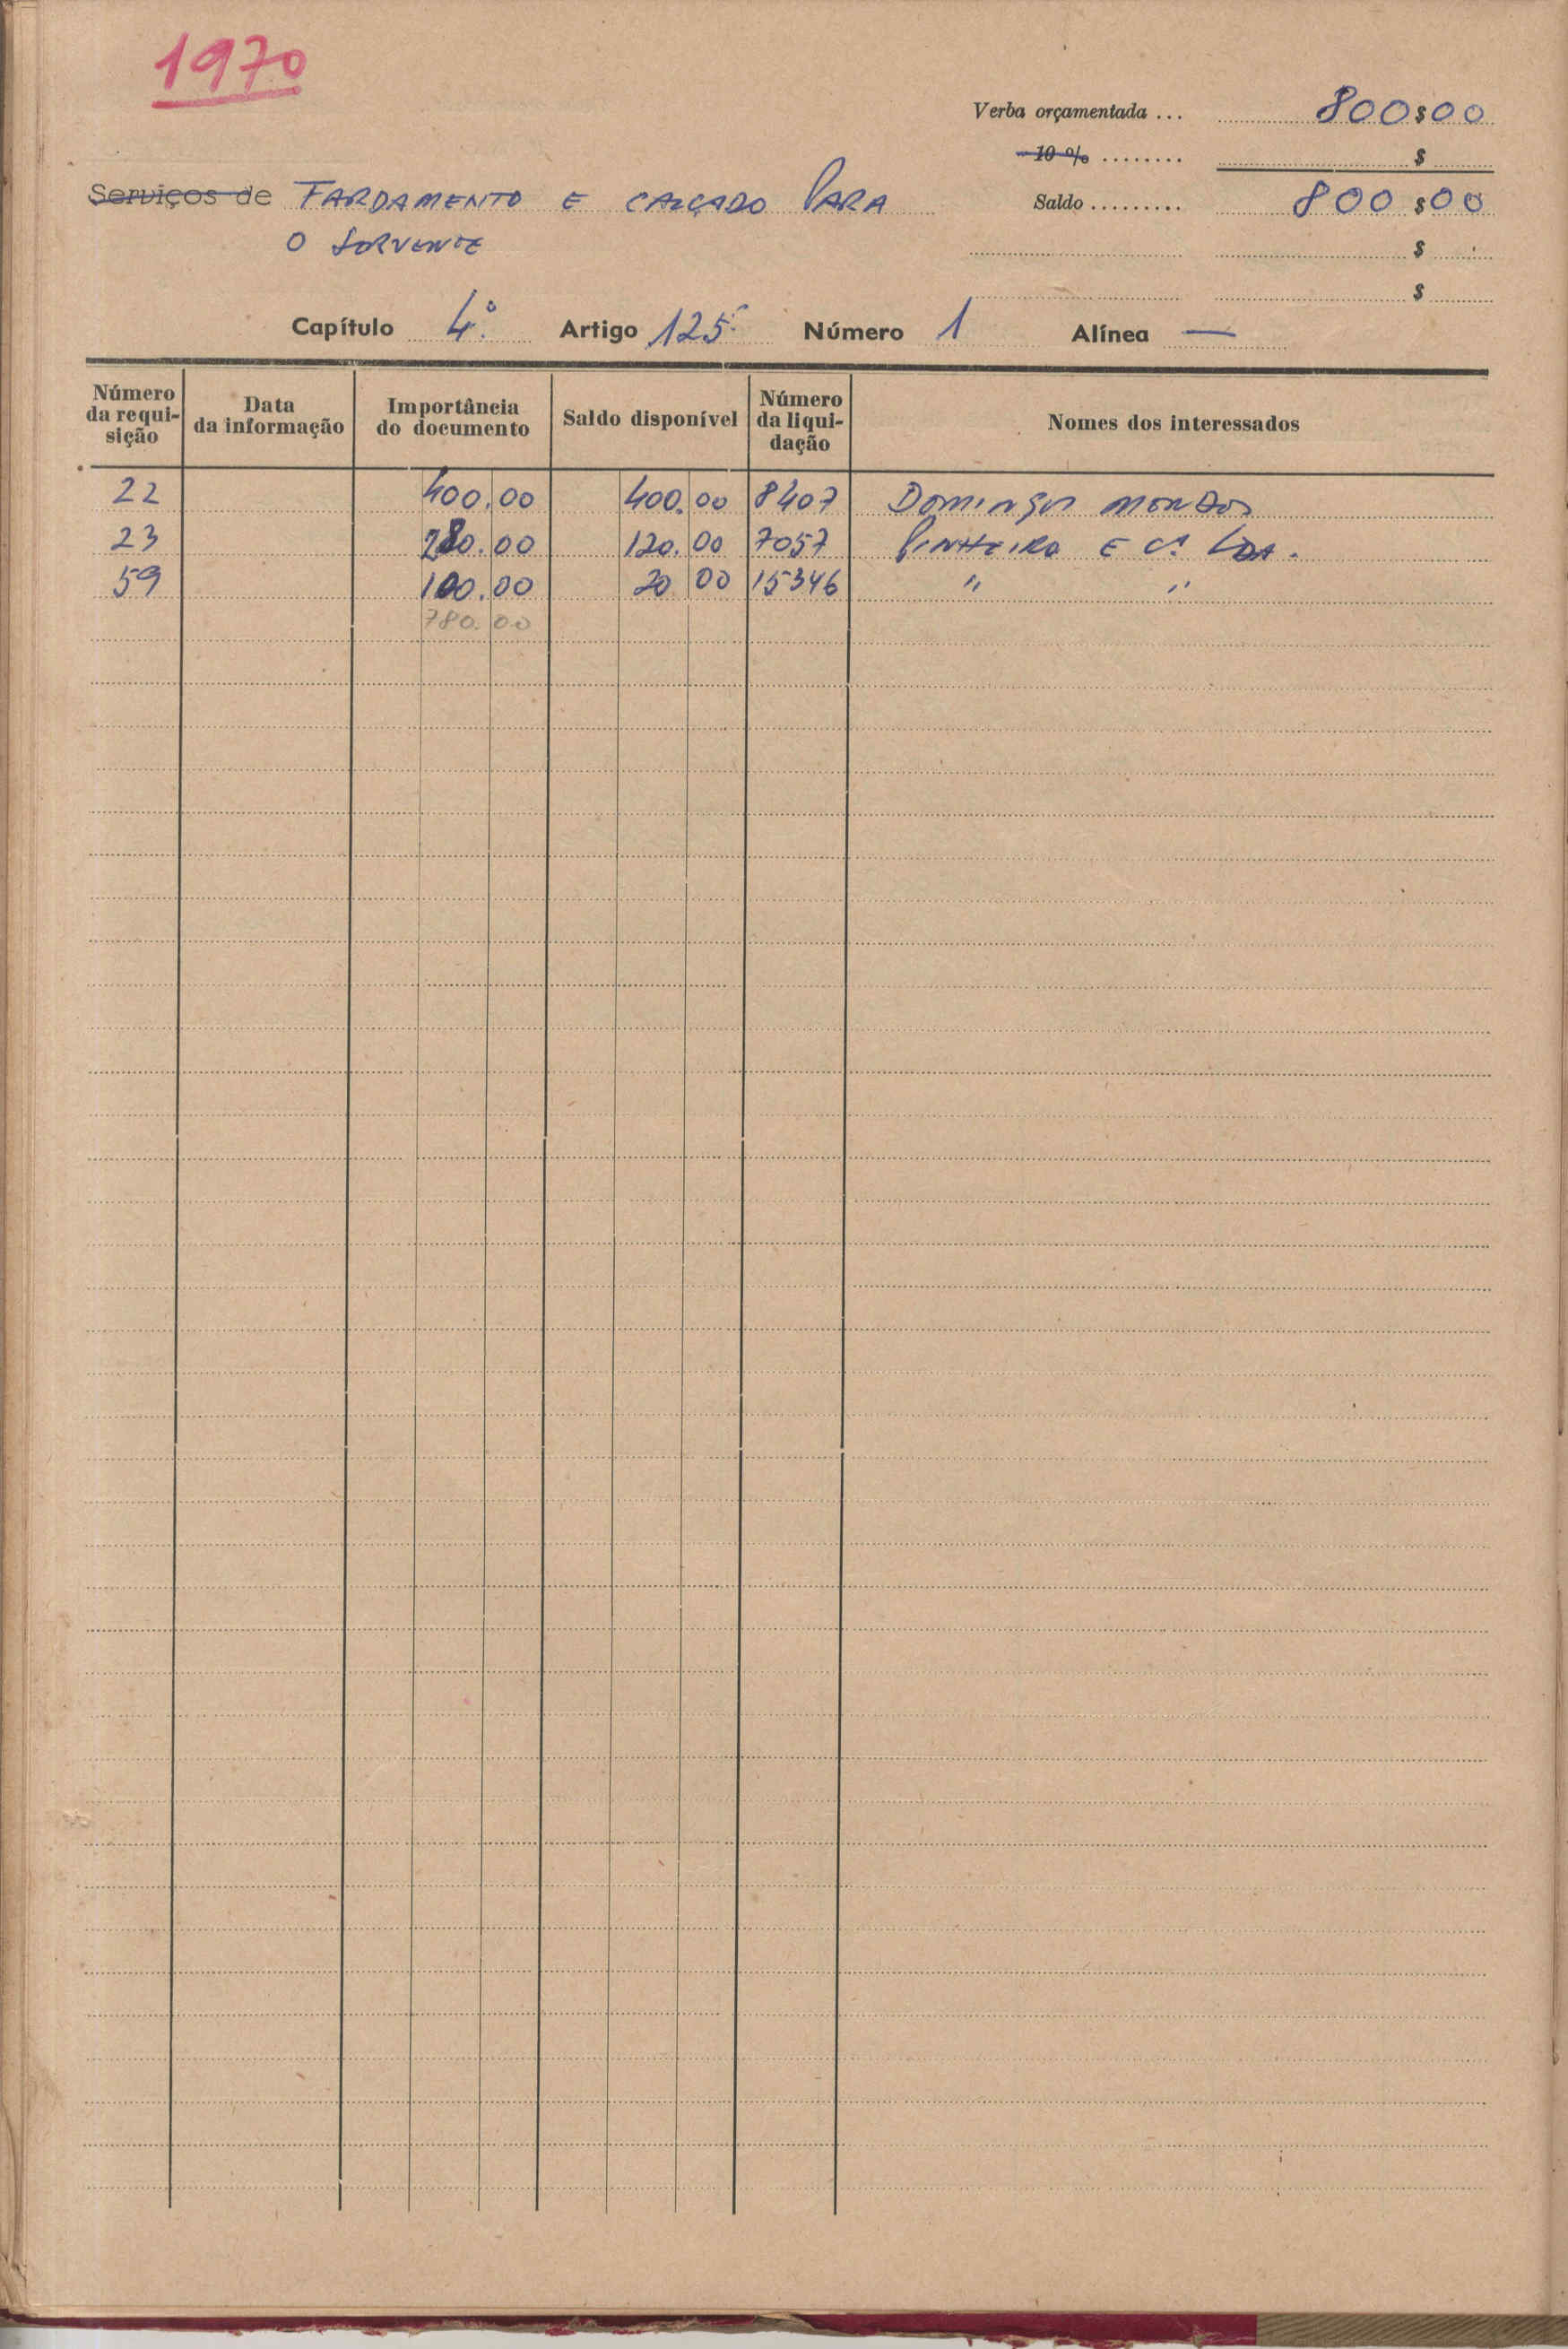 1970
Verba orçamentada ... 800$00
10 % ........ $
Serviços de FARDAMENTO E CALÇADO PARA
Saldo ......... 800$00
O SERVENTE
$
$
Capítulo 4.º Artigo 125º Número 1 Alínea —
Número da requisição Data da informação Importância do documento Saldo disponível Número da liquidação Nomes dos interessados
22 400.00 400.00 8407 DOMINGOS
23 280.00 120.00 7057 PINHEIRO E Cª LDA.
59 100.00 20 00 15346 " "
780.00